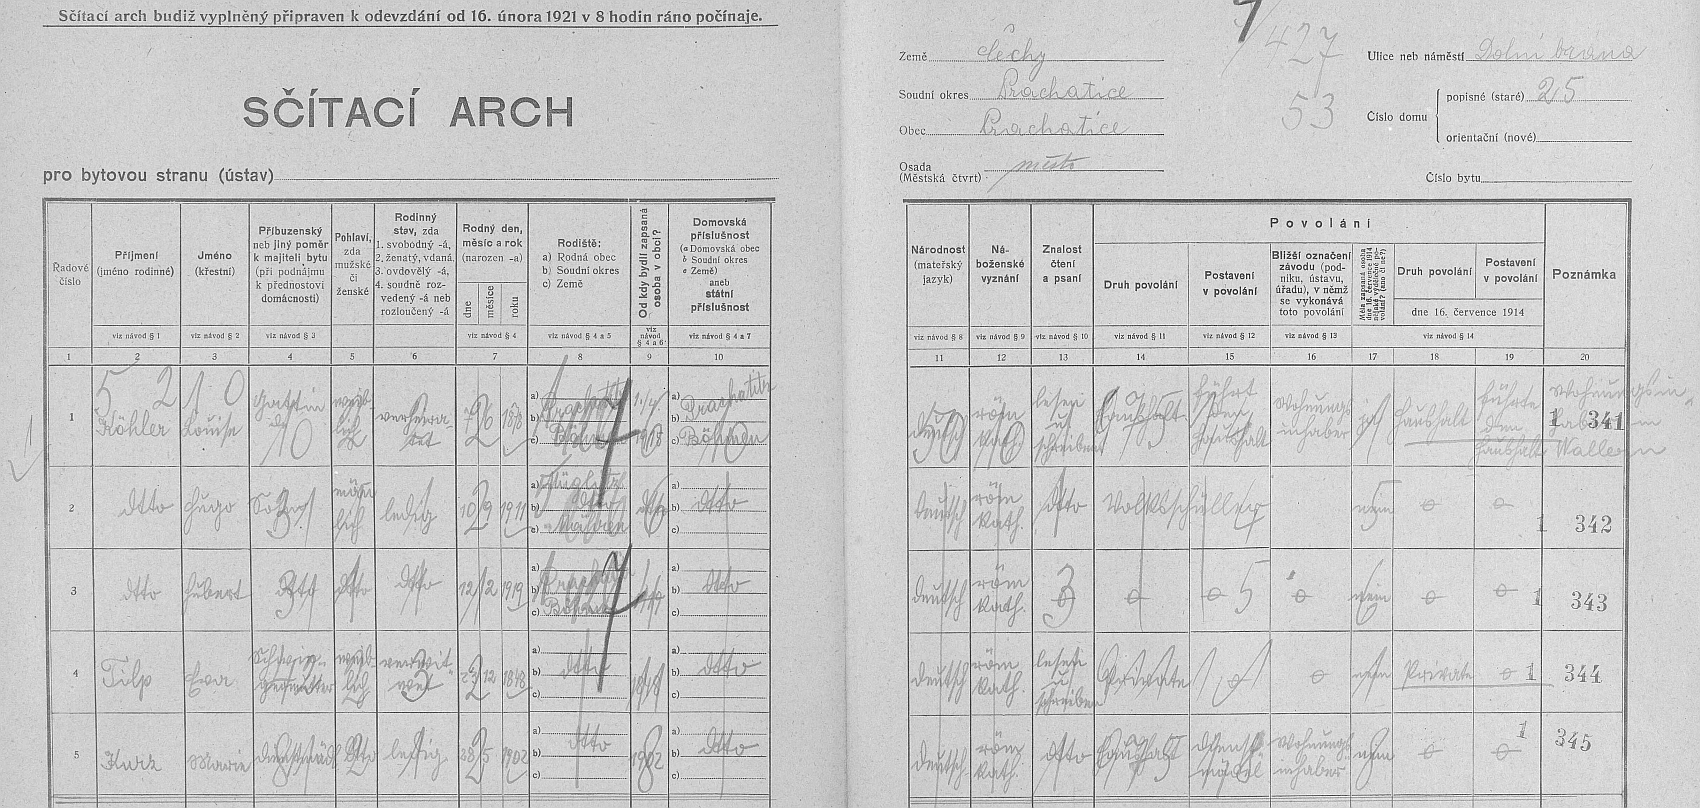 Sčítací arch budiž vyplněný připraven k odevzdání od 16. února 1921 v 8 hodin ráno počínaje.
SČÍTACÍ ARCH
pro bytovou stranu (ústav)
Řadové číslo
Příjmení (jméno rodinné)
Jméno (křestní)
Příbuzenský neb jiný poměr k majiteli bytu (při podnájmu k přednostovi domácnosti)
Pohlaví, zda mužské či ženské
Rodinný stav, zda
1. svobodný -á,
2. ženatý, vdaná,
3. ovdovělý -á,
4. soudně rozvedený -á neb rozloučený -á
Rodný den, měsíc a rok (narozen -a)
dne měsíce roku
Rodiště:
a) Rodná obec
b) Soudní okres
c) Země
Od kdy bydlí zapsaná osoba v obci?
Domovská příslušnost
(a Domovská obec
b Soudní okres
c Země)
aneb
státní příslušnost
viz návod § 1
viz návod § 2
viz návod § 3
viz návod § 4
viz návod § 4 a 5
viz návod § 4 a 6
viz návod § 4 a 7
1 2 3 4 5 6 7 8 9 10
1 Köhler Louise Gattin weiblich verheiratet 1878 Böhmen 1918 Prachatitz Böhmen
2 dtto Hugo Sohn männlich ledig 10 9 1911 dtto Mähren dtto
3 dtto Hubert dtto dtto dtto 12 12 1919 Böhmen dtto
4 Tilp Eva Schwiegermutter weiblich verwitwet 12 1848 dtto 1848 dtto
5 Kurz Marie dtto ledig 28 5 1902 dtto 1902 dtto
427
53
Země Čechy
Soudní okres Prachatice
Obec Prachatice
Osada (Městská čtvrt) město
Ulice neb náměstí Dolní brána
Číslo domu
popisné (staré) 25
orientační (nové)
Číslo bytu
Národnost (mateřský jazyk)
Náboženské vyznání
Znalost čtení a psaní
Povolání
Druh povolání
Postavení v povolání
Bližší označení závodu (podniku, ústavu, úřadu), v němž se vykonává toto povolání
Druh povolání
Postavení v povolání
dne 16. července 1914
Poznámka
viz návod § 8
viz návod § 9
viz návod § 10
viz návod § 11
viz návod § 12
viz návod § 13
viz návod § 14
11 12 13 14 15 16 17 18 19 20
deutsch röm. kath. lesen u. schreiben Haushalt führt den Haushalt Wohnungsinhaber ja Haushalt führte den Haushalt 1 341 Wohnungsin- haber in Wallern
deutsch röm. kath. dtto Volksschüler nein o o 1 342
deutsch röm. kath. o o 5 o nein o o 1 343
deutsch röm. kath. lesen u. schreiben Private o o nein Private o 1 344
deutsch röm. kath. dtto Haushalt Dienstmädel Wohnungsinhaber nein o o 1 345